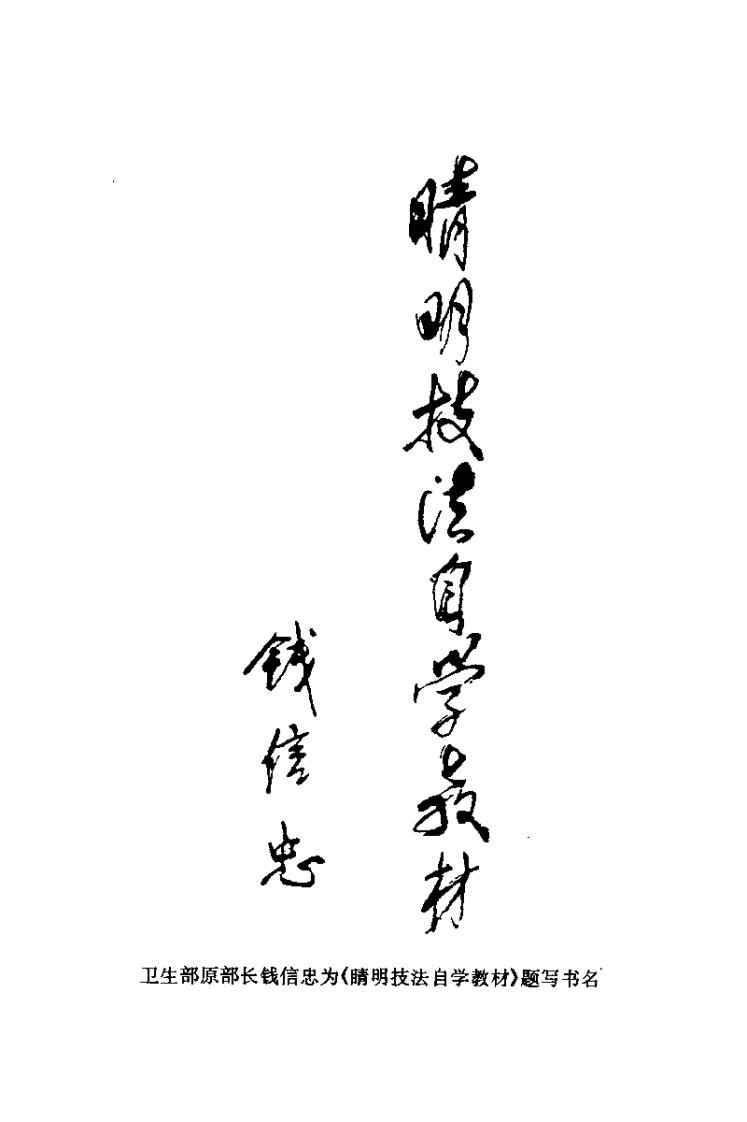 睛明技法自学教材
钱信忠
卫生部原部长钱信忠为《睛明技法自学教材》题写书名